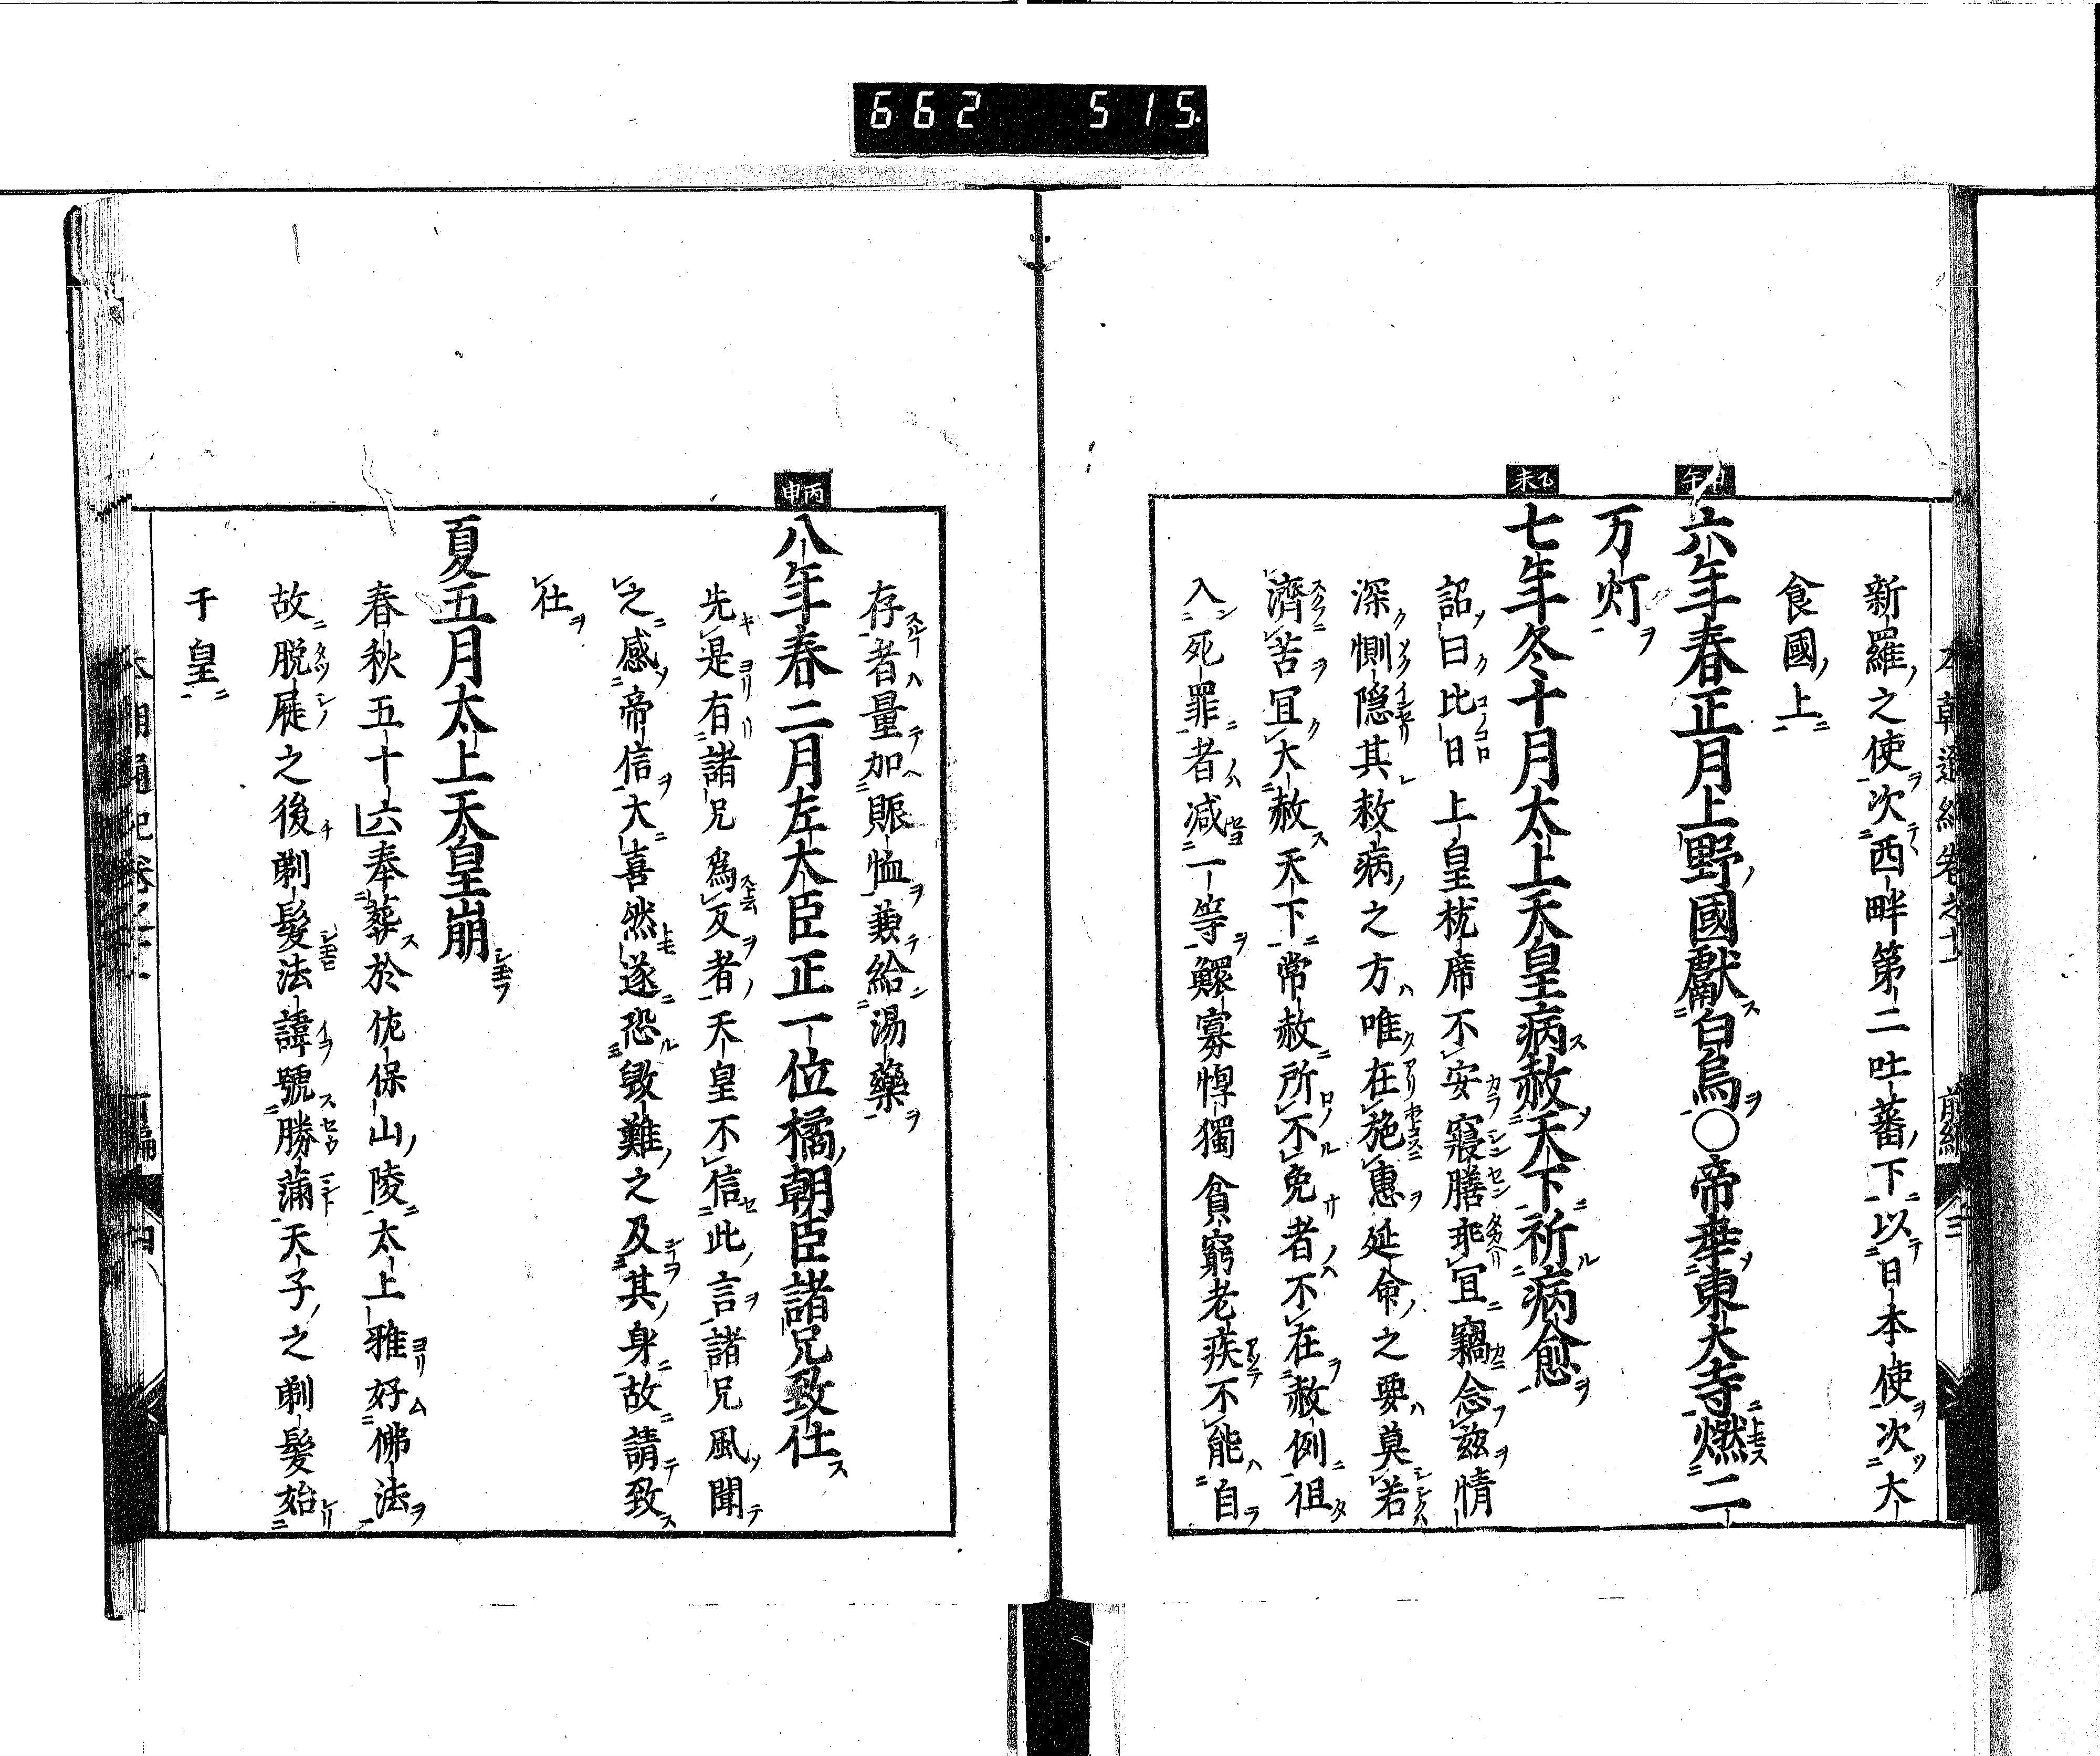 662 515.
本朝通紀卷之十一 前編 三
新羅之使次西畔第二吐蕃下以日本使次大
食國上
甲午
六年春正月上野國獻白烏〇帝幸東大寺燃二
万灯
乙未
七年冬十月太上天皇病赦天下祈病愈
詔曰比日上皇枕席不安寢膳乖冝竊念兹情
深惻隠其救病之方唯在施惠延命之要莫若
濟苦冝大赦天下常赦所不免者不在赦例徂
入死罪者减一等鰥寡惸獨貧窮老疾不能自
存者量加賑恤兼給湯藥
丙申
八年春二月左大臣正一位橘朝臣諸兄致仕
先是有諸兄爲反者天皇不信此言諸兄風聞
之感帝信大喜然遂恐毀難之及其身故請致
仕
夏五月太上天皇崩
春秋五十六奉葬於佐保山陵太上雅好佛法
故脱屣之後剃髮法諱號勝滿天子之剃髮始
于皇